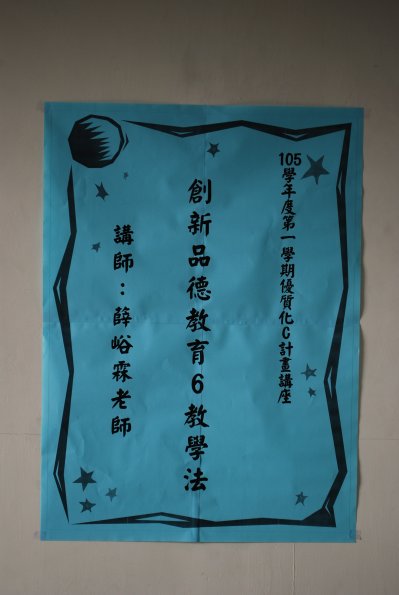 105學年度第一學期優質化C計畫講座
創新品德教育6教學法
講師：薛峪霖老師